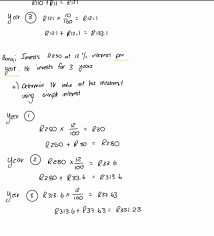 R110 + R11 = R121
Year ③ R121 × 10/100 = R12.1
R121 + R12.1 = R133.1
Invests R250 at 12% interest per
year. He invests for 3 years
a) Determine the value of his investment
using simple interest
Year ①
R250 × 12/100 = R30
R250 + R30 = R280
Year ② R280 × 12/100 = R33.6
R280 + R33.6 = R313.6
Year ③ R313.6 × 12/100 = R37.63
R313.6 + R37.63 = R351.23